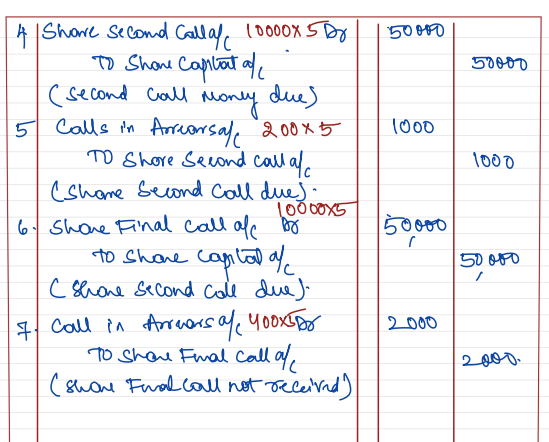 4 Share Second Call a/c 10000 x 5 Dr 50000
To Share Capital a/c 50000
(Second Call Money due)
5 Calls in Arrears a/c 200 x 5 1000
To Share Second Call a/c 1000
(Share Second Call due).
10000x5
6. Share Final Call a/c Dr 50000
To Share Capital a/c 50000
(Share Second Call due).
7. Call in Arrears a/c 400x5 Dr 2000
To Share Final Call a/c 2000.
(Share Final Call not received)